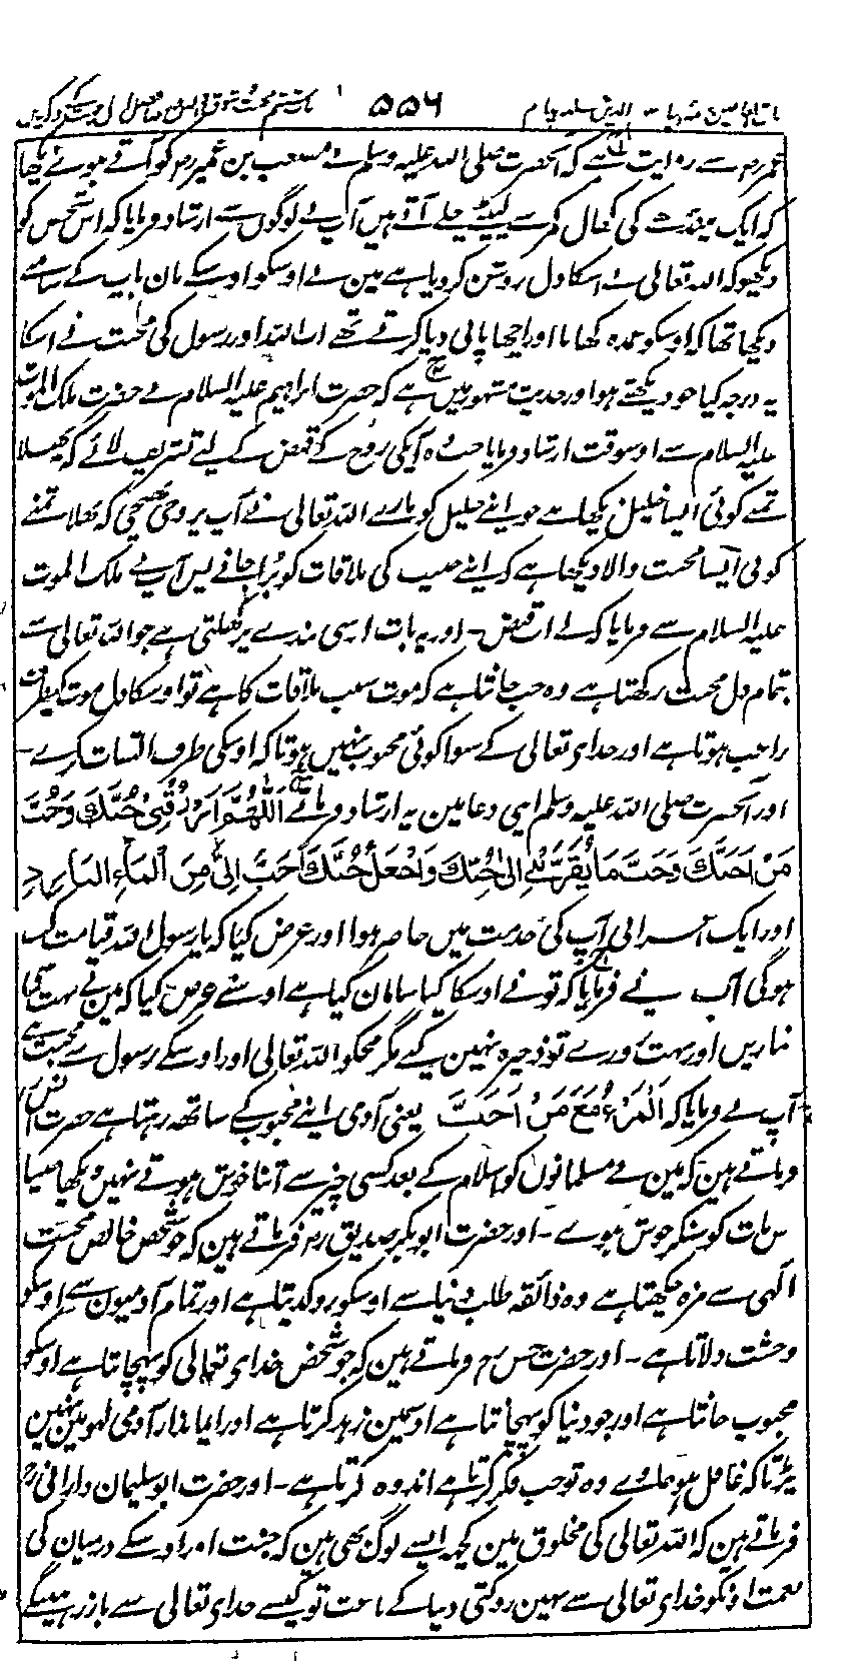 ۵۵۶
عمر رض سے روایت ہے کہ آنحضرت صلی اللہ علیہ وسلم نے مصعب بن عمیر رض کو آتے ہوئے دیکھا
کہ ایک مینڈھے کی کھال کمر سے لپیٹے چلے آتے ہیں آپ نے لوگوں سے ارشاد فرمایا کہ اس شخص کو
دیکھو کہ اللہ تعالی نے اسکا دل روشن کردیا ہے مین نے اوسکو اوسکے مان باپ کے سامنے
دیکھا تھا کہ اوسکو عمدہ کھانا اور اچھا پانی دیا کرتے تھے اب اللہ اور رسول کی محبت نے اسکا
یہ درجہ کیا جو دیکھتے ہو اور حدیث مشہور میں ہے کہ حضرت ابراہیم علیہ السلام نے حضرت ملک الموت
علیہ السلام سے اوسوقت ارشاد فرمایا جب وہ آپکی روح کے قبض کے لیے تشریف لائے کہ بھلا
تمنے کوئی ایسا خلیل دیکھا ہے جو اپنے خلیل کو مارے اللہ تعالی نے آپ پر وحی بھیجی کہ بھلا تمنے
کوئی ایسا محبت والا دیکھا ہے کہ اپنے حبیب کی ملاقات کو بُرا جانے پس آپ نے ملک الموت
علیہ السلام سے فرمایا کہ لے اب قبض ۔ اور یہ بات اوسی بندے پر کھلتی ہے جو اللہ تعالی سے
بتمام دل محبت رکھتا ہے وہ جب جانتا ہے کہ موت سبب ملاقات کا ہے تو اوسکا دل موت کیطرف
راغب ہوتا ہے اور خدای تعالی کے سوا کوئی محبوب نہیں ہوتا کہ اوسکی طرف التفات کرے ۔
اور آنحضرت صلی اللہ علیہ وسلم اپنی دعا مین یہ ارشاد فرماتے اَللّٰهُمَّ ارْزُقْنِیْ حُبَّكَ وَحُبَّ
مَنْ اَحَبَّكَ وَحُبَّ مَا یُقَرِّبُنِیْ اِلٰی حُبِّكَ وَاجْعَلْ حُبَّكَ اَحَبَّ اِلَیَّ مِنَ الْمَاءِ الْبَارِدِ
اور ایک اعرابی آپ کی خدمت میں حاضر ہوا اور عرض کیا کہ یا رسول اللہ قیامت کب
ہوگی آپ نے فرمایا کہ تونے اوسکا کیا سامان کیا ہے اوسنے عرض کیا کہ مین نے بہت سی
نمازیں اور بہت روزے تو ذخیرہ نہین کیے مگر مجکو اللہ تعالی اور اوسکے رسول سے محبت ہے
آپ نے فرمایا کہ اَلْمَرْءُ مَعَ مَنْ اَحَبَّ یعنی آدمی اپنے محبوب کے ساتھ رہتا ہے حضرت انس رض
فرماتے ہین کہ مین نے مسلمانوں کو اسلام کے بعد کسی چیز سے اتنا خوش ہوتے نہین دیکھا جیسا
اس بات کو سنکر خوش ہوے ۔ اور حضرت ابوبکر صدیق رض فرماتے ہین کہ جو شخص خالص محبت
الٰہی سے مزہ چکھتا ہے وہ ذائقہ طلب دنیا سے اوسکو روکدیتا ہے اور تمام آدمیون سے اوسکو
وحشت دلاتا ہے ۔ اور حضرت حسن رح فرماتے ہین کہ جو شخص خدای تعالی کو پہچانتا ہے اوسکو
محبوب جانتا ہے اور جو دنیا کو پہچانتا ہے اوسمین زہد کرتا ہے اور ایماندار آدمی لہو مین نہین
پڑتا کہ غافل ہو جاوے وہ تو جب فکر کرتا ہے اندوہ کرتا ہے ۔ اور حضرت ابو سلیمان دارانی رح
فرماتے ہین کہ اللہ تعالی کی مخلوق مین کچھ ایسے لوگ بھی ہین کہ جنت اور اوسکے درمیان کی
نعمت اونکو خدای تعالی سے نہین روکتی دنیا کے باعث تو کیسے خدای تعالی سے باز رہینگے